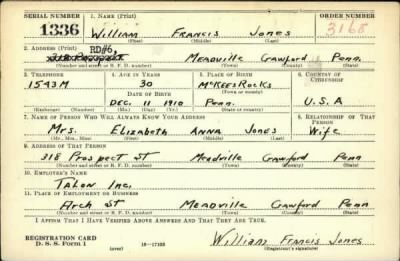 SERIAL NUMBER 1. NAME (Print) ORDER NUMBER
1336 William Francis Jones 3168
(First) (Middle) (Last)
2. ADDRESS (Print) RD#6,
Meadville Crawford Penn.
(Number and street or R. F. D. number) (Town) (County) (State)
3. TELEPHONE 4. AGE IN YEARS 5. PLACE OF BIRTH 6. COUNTRY OF CITIZENSHIP
1543M 30 McKees Rocks
DATE OF BIRTH (Town or county)
Dec. 11 1910 Penn. U.S.A
(Exchange) (Number) (Mo.) (Day) (Yr.) (State or country)
7. NAME OF PERSON WHO WILL ALWAYS KNOW YOUR ADDRESS 8. RELATIONSHIP OF THAT PERSON
Mrs. Elizabeth Anna Jones Wife
(Mr., Mrs., Miss) (First) (Middle) (Last)
9. ADDRESS OF THAT PERSON
318 Prospect St Meadville Crawford Penn
(Number and street or R. F. D. number) (Town) (County) (State)
10. EMPLOYER'S NAME
Talon Inc.
11. PLACE OF EMPLOYMENT OR BUSINESS
Arch St Meadville Crawford Penn
(Number and street or R. F. D. number) (Town) (County) (State)
I AFFIRM THAT I HAVE VERIFIED ABOVE ANSWERS AND THAT THEY ARE TRUE.
REGISTRATION CARD
D. S. S. Form 1 (over) 16—17105 William Francis Jones
(Registrant's signature)